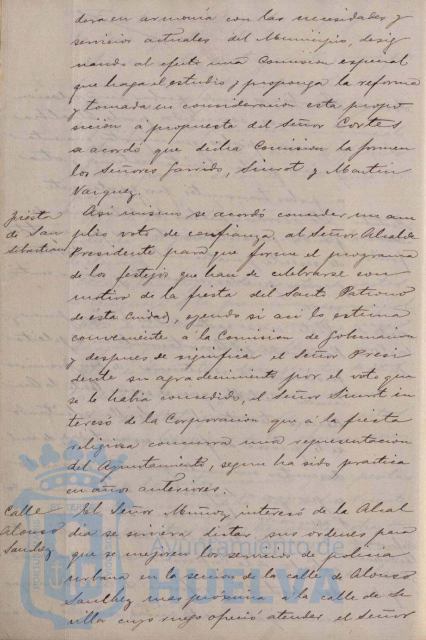 dora en armonía con las necesidades y
servicios actuales del Municipio, desig
nando al efecto una Comisión especial
que haga el estudio y proponga la reforma
y tomada en consideración esta propo
sición á propuesta del Señor Cortés
se acordó que dicha Comisión la formen
los Señores Garrido, Siurot y Martín
Vazquez.
Fiesta de San Sebastian
Asi mismo se acordó conceder un am
plio voto de confianza al Señor Alcalde
Presidente para que forme el programa
de los festejos que han de celebrarse con
motivo de la fiesta del Santo Patrono
de esta Ciudad, oyendo si asi lo estima
conveniente á la Comisión de Gobernacion
y despues de significar el Señor Presi
dente su agradecimiento por el voto que
se le habia concedido, el Señor Siurot in
teresó de la Corporacion que á la fiesta
religiosa concurra una representacion
del Ayuntamiento, segun ha sido practica
en años anteriores.
Calle Alonso Sanchez
El Señor Muñoz interesó de la Alcal
dia se sirviera dictar sus órdenes para
que se mejoren los servicios de policia
urbana en la seccion de la calle de Alonso
Sanchez mas proxima á la calle de Se
villa cuyo ruego ofreció atender el Señor
Ayuntamiento de
HUELVA